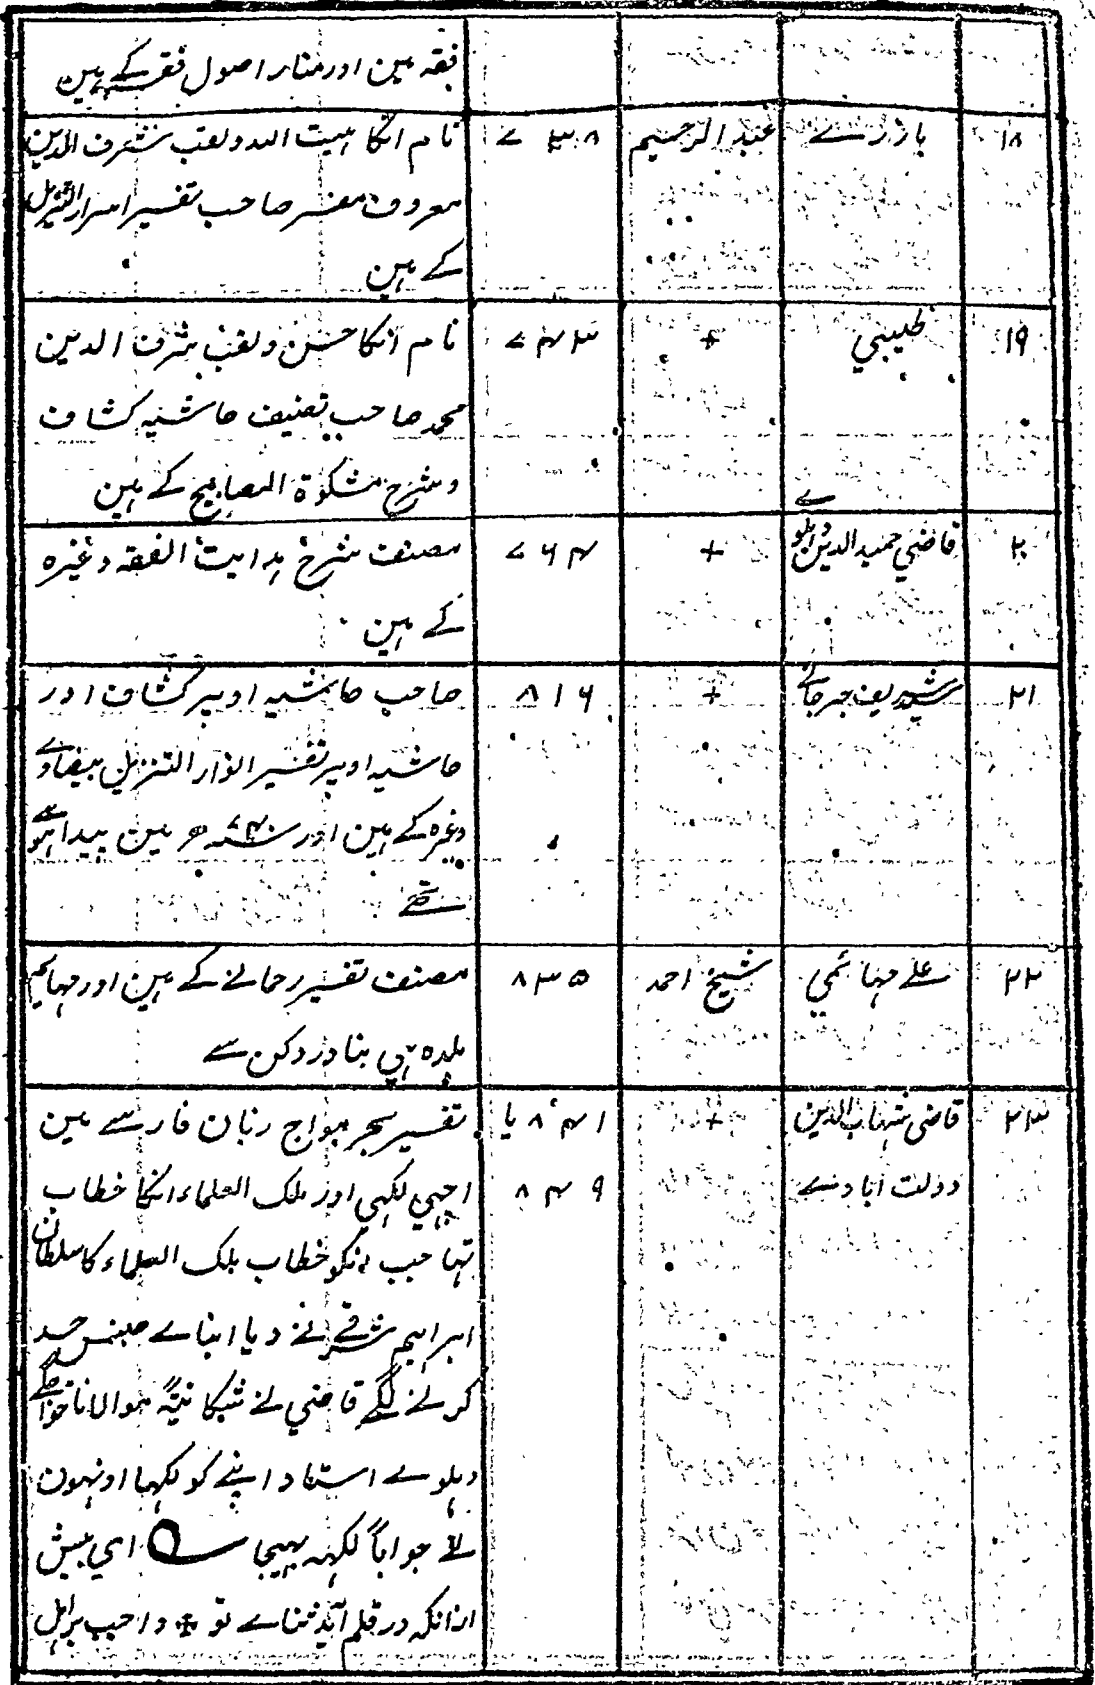 فقہ مین اور منار اصول فقہ کے ہین
۱۸ بازرے عبد الرحیم ۷۳۸ نام انکا ہیبت اللہ ولقب شرف الدین
معروف مفسر صاحب تفسیر اسرار التنزیل
کے ہین
۱۹ طیبي + ۷۴۳ نام انکا حسن ولقب شرف الدین
محمد صاحب تصنیف حاشیہ کشاف
وشرح مشکوٰۃ المصابیح کے ہین
۲۰ قاضي حمید الدین دہلوے + ۷۶۴ مصنف شرح ہدایت الفقہ وغیرہ
کے ہین
۲۱ شریف جرجانے + ۸۱۶ صاحب حاشیہ اوپر کشاف اور
حاشیہ اوپر تفسیر انوار التنزیل بیضاوے
وغیرہ کے ہین اور سنہ ۷۴۰ھ مین پیدا ہوے
تھے
۲۲ علے مہائمي شیخ احمد ۸۳۵ مصنف تفسیر رحمانے کے ہین اور مہایم
بلدہ ہي بنادر دکن سے
۲۳ قاضی شہاب الدین + ۸۴۱ یا تفسیر بحر مواج زبان فارسے مین
دولت آبادے ۸۴۹ اچہي لکہي اور ملک العلماء انکا خطاب
تہا جب انکو خطاب ملک العلماء کا سلطان
ابراہیم شرقے نے دیا ابناے جنس حسد
کرنے لگے قاضي نے شکایتہً مولانا خواجگے
دہلوے استاد اپنے کو لکہا اونہون
نے جواباً لکہہ بہیجا اي بیش
ازانکہ در قلم آید ثناے تو + واجب براہل